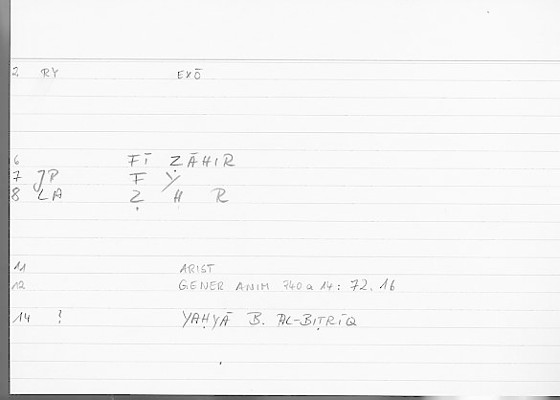 2 RY EXŌ
6 FĪ ẒĀHIR
7 JP F Y
8 LA Ẓ H R
11 ARIST
12 GENER ANIM 740a14: 72.16
14 ? YAḤYĀ B. AL-BIṬRĪQ